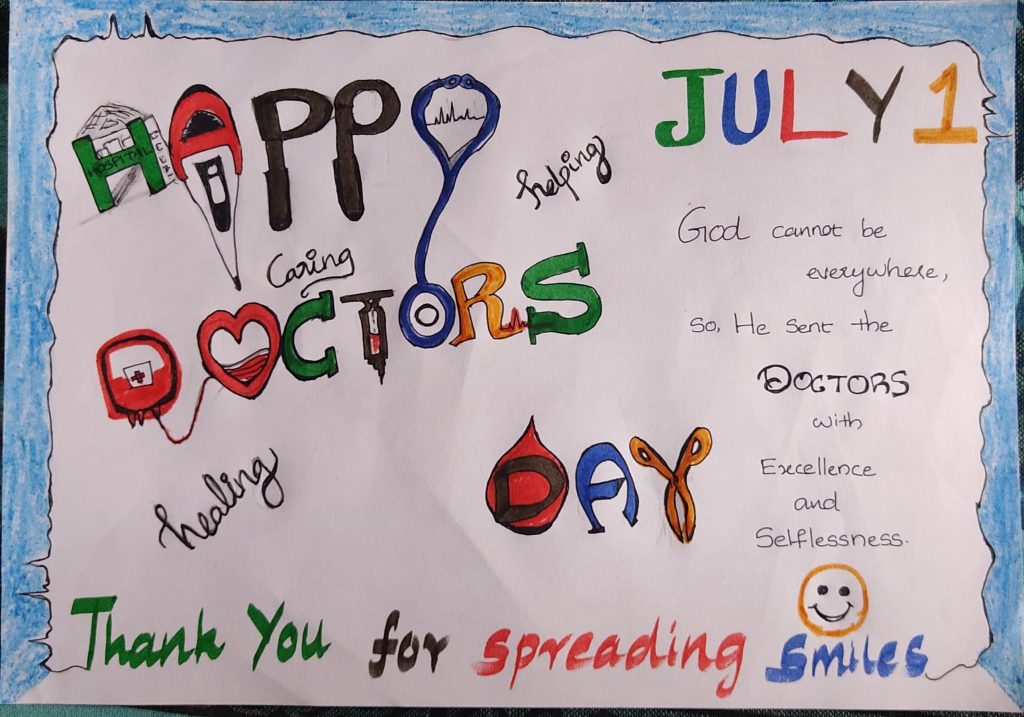 HAPPY
HOSPITAL
JULY 1
helping
Caring
DOCTORS
healing
DAY
God cannot be
everywhere,
so, He sent the
DOCTORS
with
Excellence
and
Selflessness.
Thank You for spreading smiles